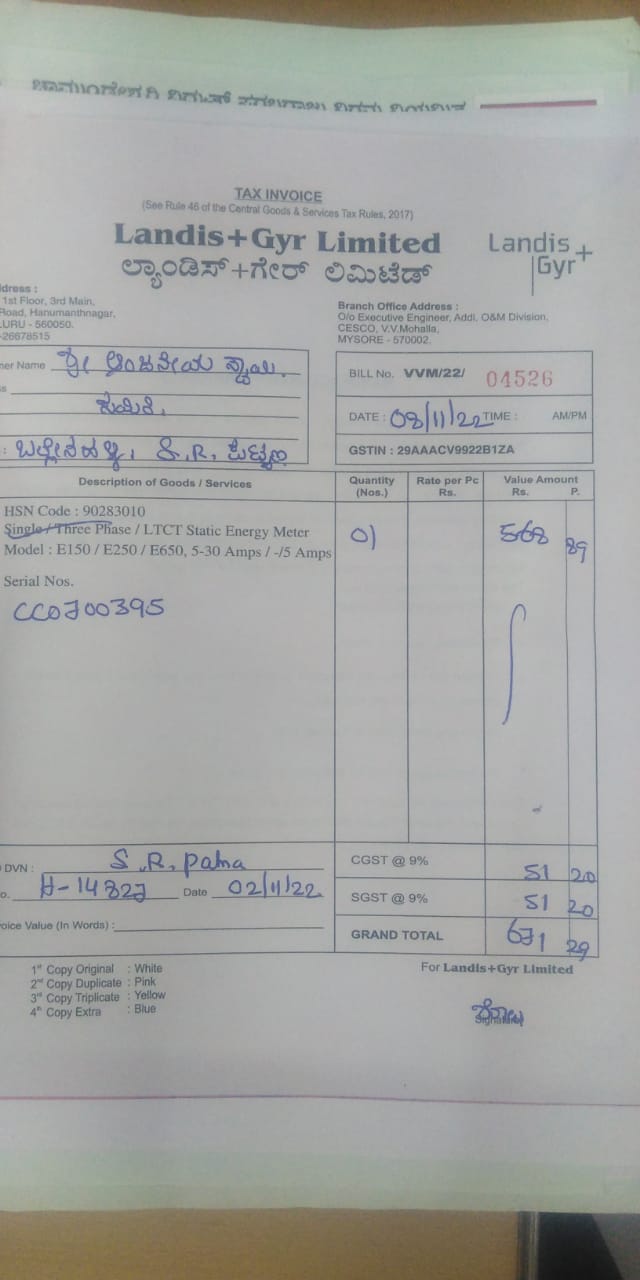 TAX INVOICE
(See Rule 46 of the Central Goods & Services Tax Rules, 2017)
Landis+Gyr Limited
ಲ್ಯಾಂಡಿಸ್+ಗೇರ್ ಲಿಮಿಟೆಡ್
Landis+
Gyr
dress :
1st Floor, 3rd Main,
Road, Hanumanthnagar,
URU - 560050.
-26678515
Branch Office Address :
O/o Executive Engineer, Addl. O&M Division,
CESCO, V.V.Mohalla,
MYSORE - 570002.
er Name ಶ್ರೀ ಆಂಜನೇಯ
BILL No. VVM/22/ 04526
s
DATE : 08/11/22 TIME : AM/PM
: S.R.
GSTIN : 29AAACV9922B1ZA
Description of Goods / Services Quantity (Nos.) Rate per Pc Rs. Value Amount Rs. P.
HSN Code : 90283010
Single / Three Phase / LTCT Static Energy Meter 01 568 89
Model : E150 / E250 / E650, 5-30 Amps / -/5 Amps
Serial Nos.
CC0700395
DVN : S.R. Patna
CGST @ 9% 51 20
o. H-14827 Date 02/11/22
SGST @ 9% 51 20
oice Value (In Words) :
GRAND TOTAL 671 29
1st Copy Original : White
2nd Copy Duplicate : Pink
3rd Copy Triplicate : Yellow
4th Copy Extra : Blue
For Landis+Gyr Limited